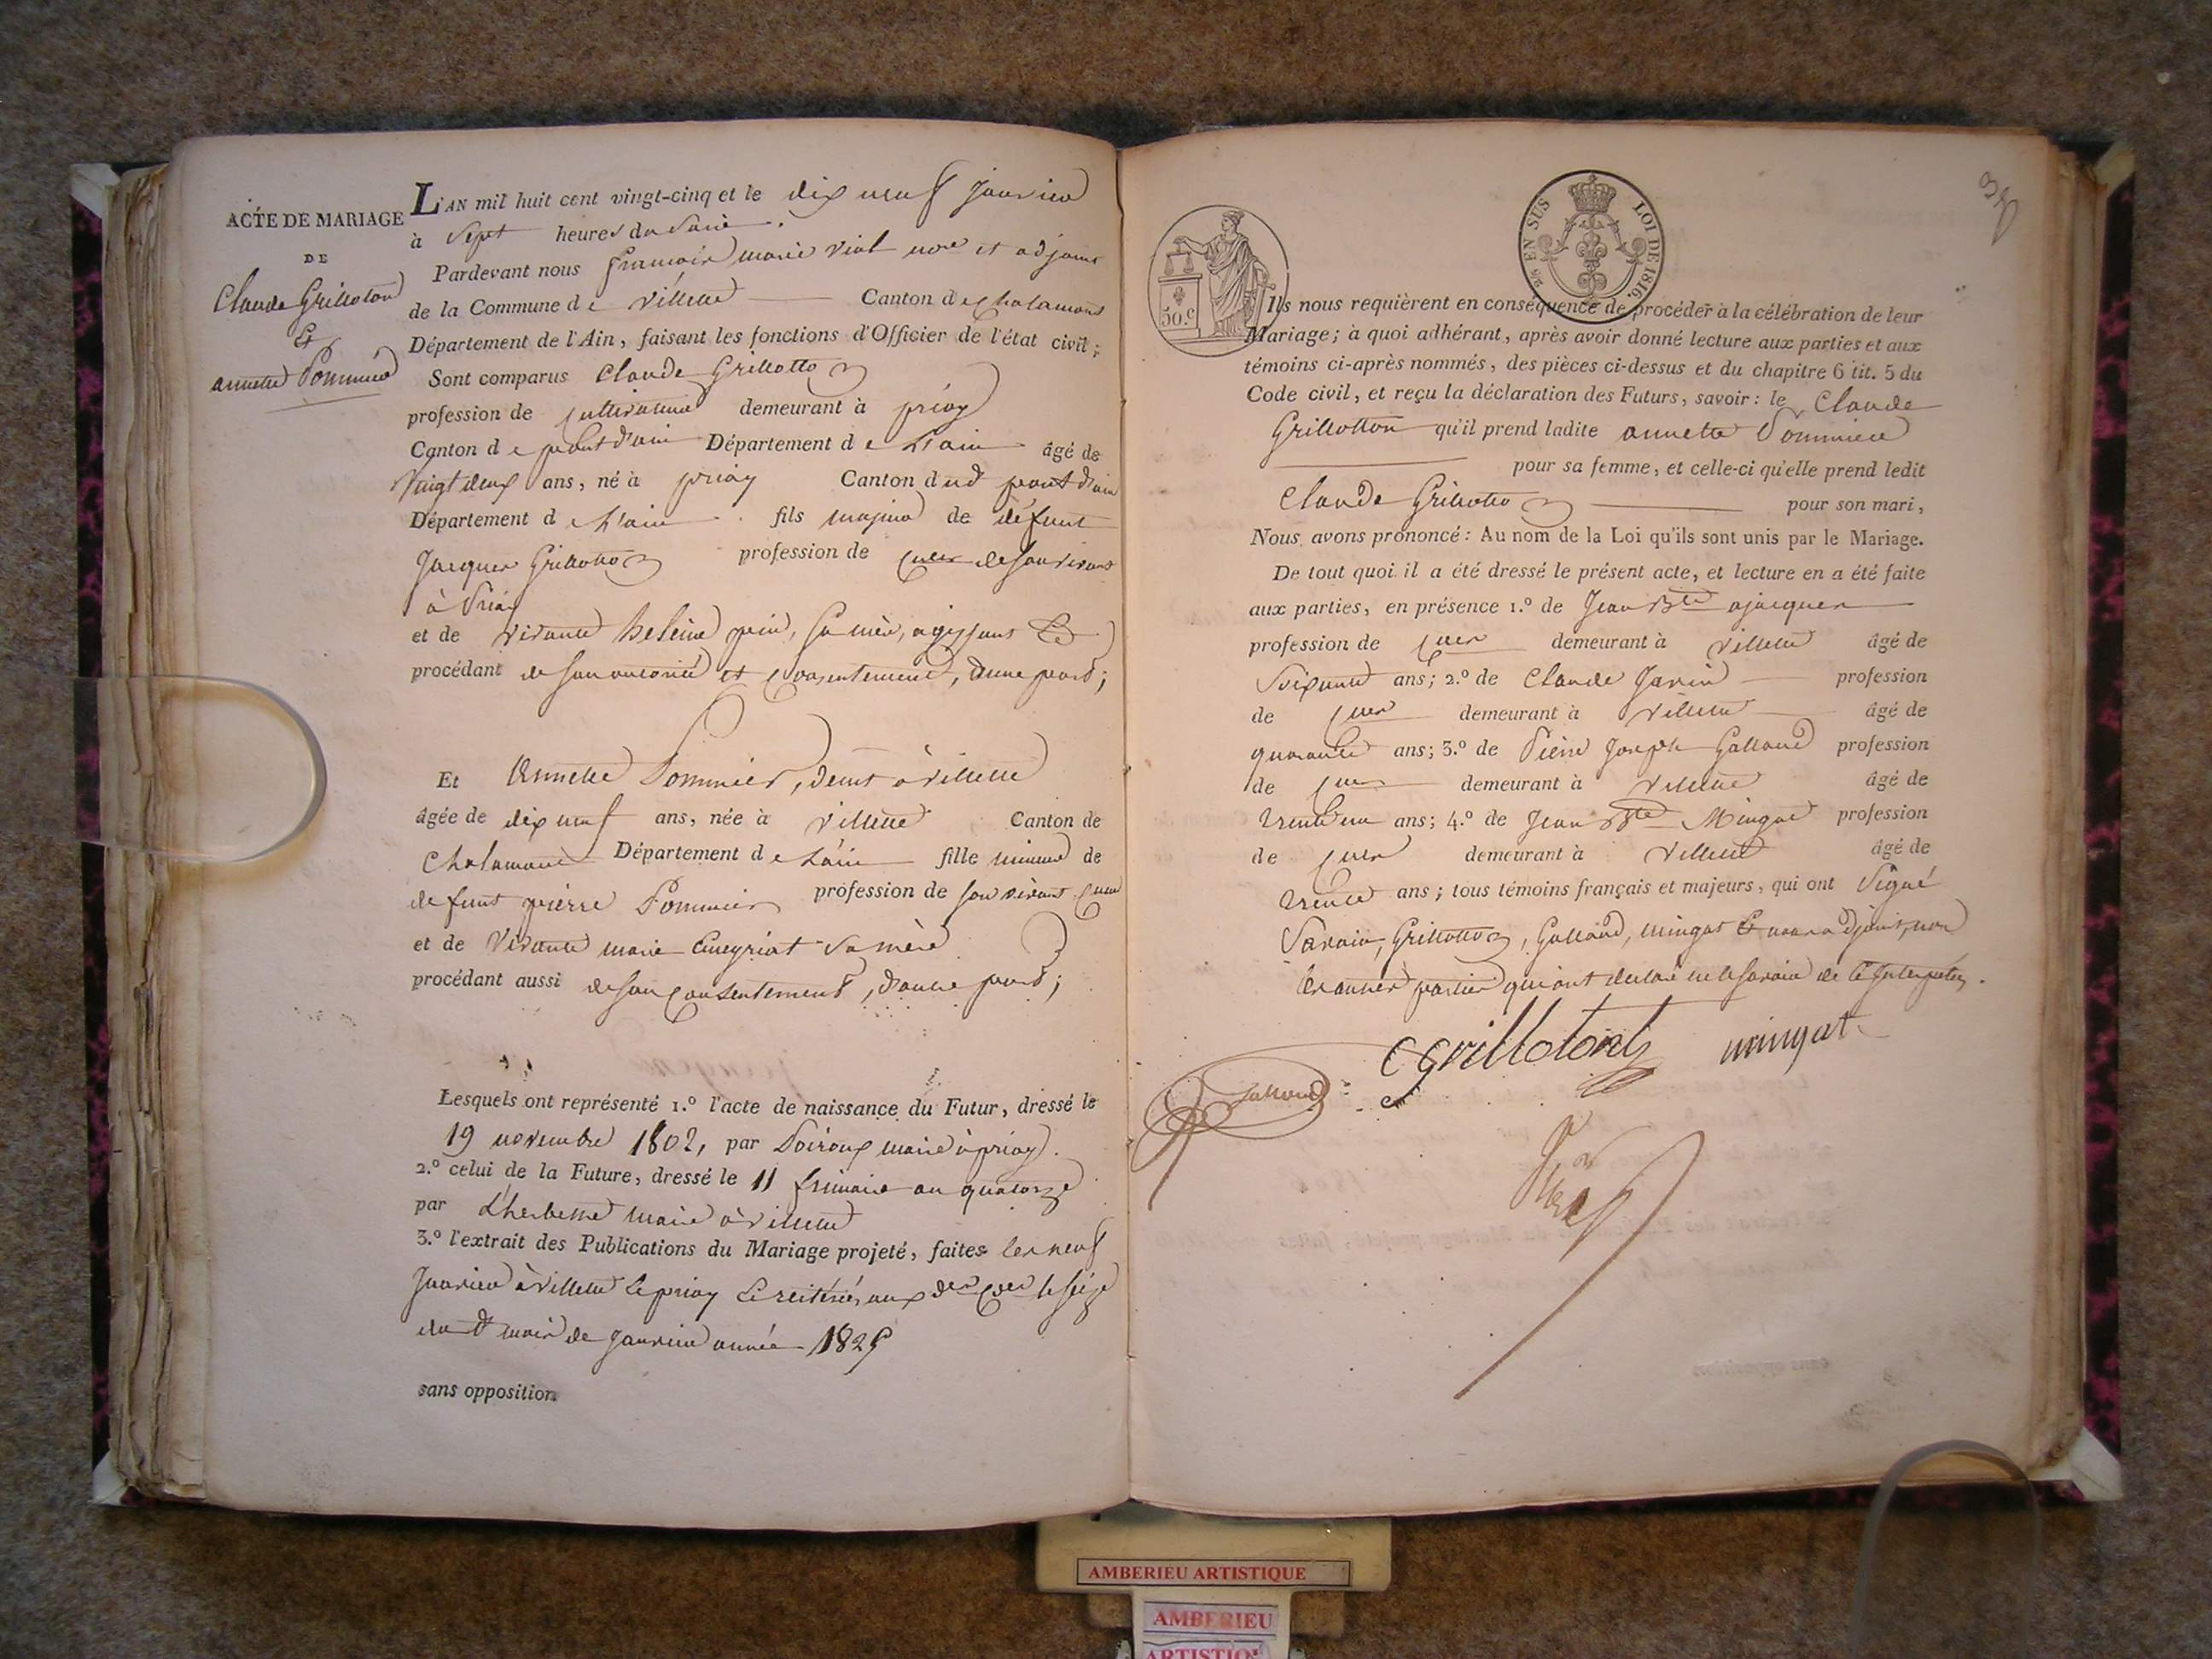 ACTE DE MARIAGE
DE
Claude Grilloton
Et
annette Pommier
L'AN mil huit cent vingt-cinq et le dix neuf Janvier
à Sept heures du Soir.
Pardevant nous françois marie Vial et adjoint
de la Commune de Villette Canton de chalamont
Département de l'Ain, faisant les fonctions d'Officier de l'état civil;
Sont comparus Claude Grillotton
profession de cultivateur demeurant à priay
Canton de pont d'ain Département de L'ain âgé de
Vingt deux ans, né à priay Canton dud pont d'ain
Département de L'ain fils majeur de défunt
Jacques Grillotton profession de de son vivant
à Priay
et de vivante helène sa mère, agissant Et
procédant de son autorité et consentement, d'une part;
Et Annette Pommier, demt à villette
âgée de dix neuf ans, née à villette Canton de
Chalamont Département de L'ain fille mineure de
defunt pierre Pommier profession de son vivant
et de Vivante marie Cueyriat Sa mère
procédant aussi de son consentement, d'autre part;
Lesquels ont représenté 1.º l'acte de naissance du Futur, dressé le
19 novembre 1802, par maire à priay.
2.º celui de la Future, dressé le 11 frimaire an quatorze
par L'herbette maire à villette
3.º l'extrait des Publications du Mariage projeté, faites les neuf
Janvier à villette Et priay Et réitérées aux le seize
du dt mois de Janvier année 1825
sans opposition
50.c
2/10 EN SUS LOI DE 1816.
Ils nous requièrent en conséquence de procéder à la célébration de leur
Mariage; à quoi adhérant, après avoir donné lecture aux parties et aux
témoins ci-après nommés, des pièces ci-dessus et du chapitre 6 tit. 5 du
Code civil, et reçu la déclaration des Futurs, savoir: le Claude
Grillotton qu'il prend ladite annette Pommier
pour sa femme, et celle-ci qu'elle prend ledit
Claude Grillotton pour son mari,
Nous avons prononcé: Au nom de la Loi qu'ils sont unis par le Mariage.
De tout quoi il a été dressé le présent acte, et lecture en a été faite
aux parties, en présence 1.º de Jean Bte ajacques
profession de demeurant à villette âgé de
Soixante ans; 2.º de Claude profession
de demeurant à villette âgé de
quarante ans; 3.º de Pierre Joseph Galland profession
de demeurant à villette âgé de
trente un ans; 4.º de Jean Bte Mingat profession
de demeurant à villette âgé de
trente ans; tous témoins français et majeurs, qui ont Signé
Savoir, Grillotton, Galland, mingat Et nous adjoint, non
les autres parties qui ont déclaré ne le savoir de ce Interpelés.
C grilloton mingat
Galland
AMBERIEU ARTISTIQUE
AMBERIEU
ARTISTIQ